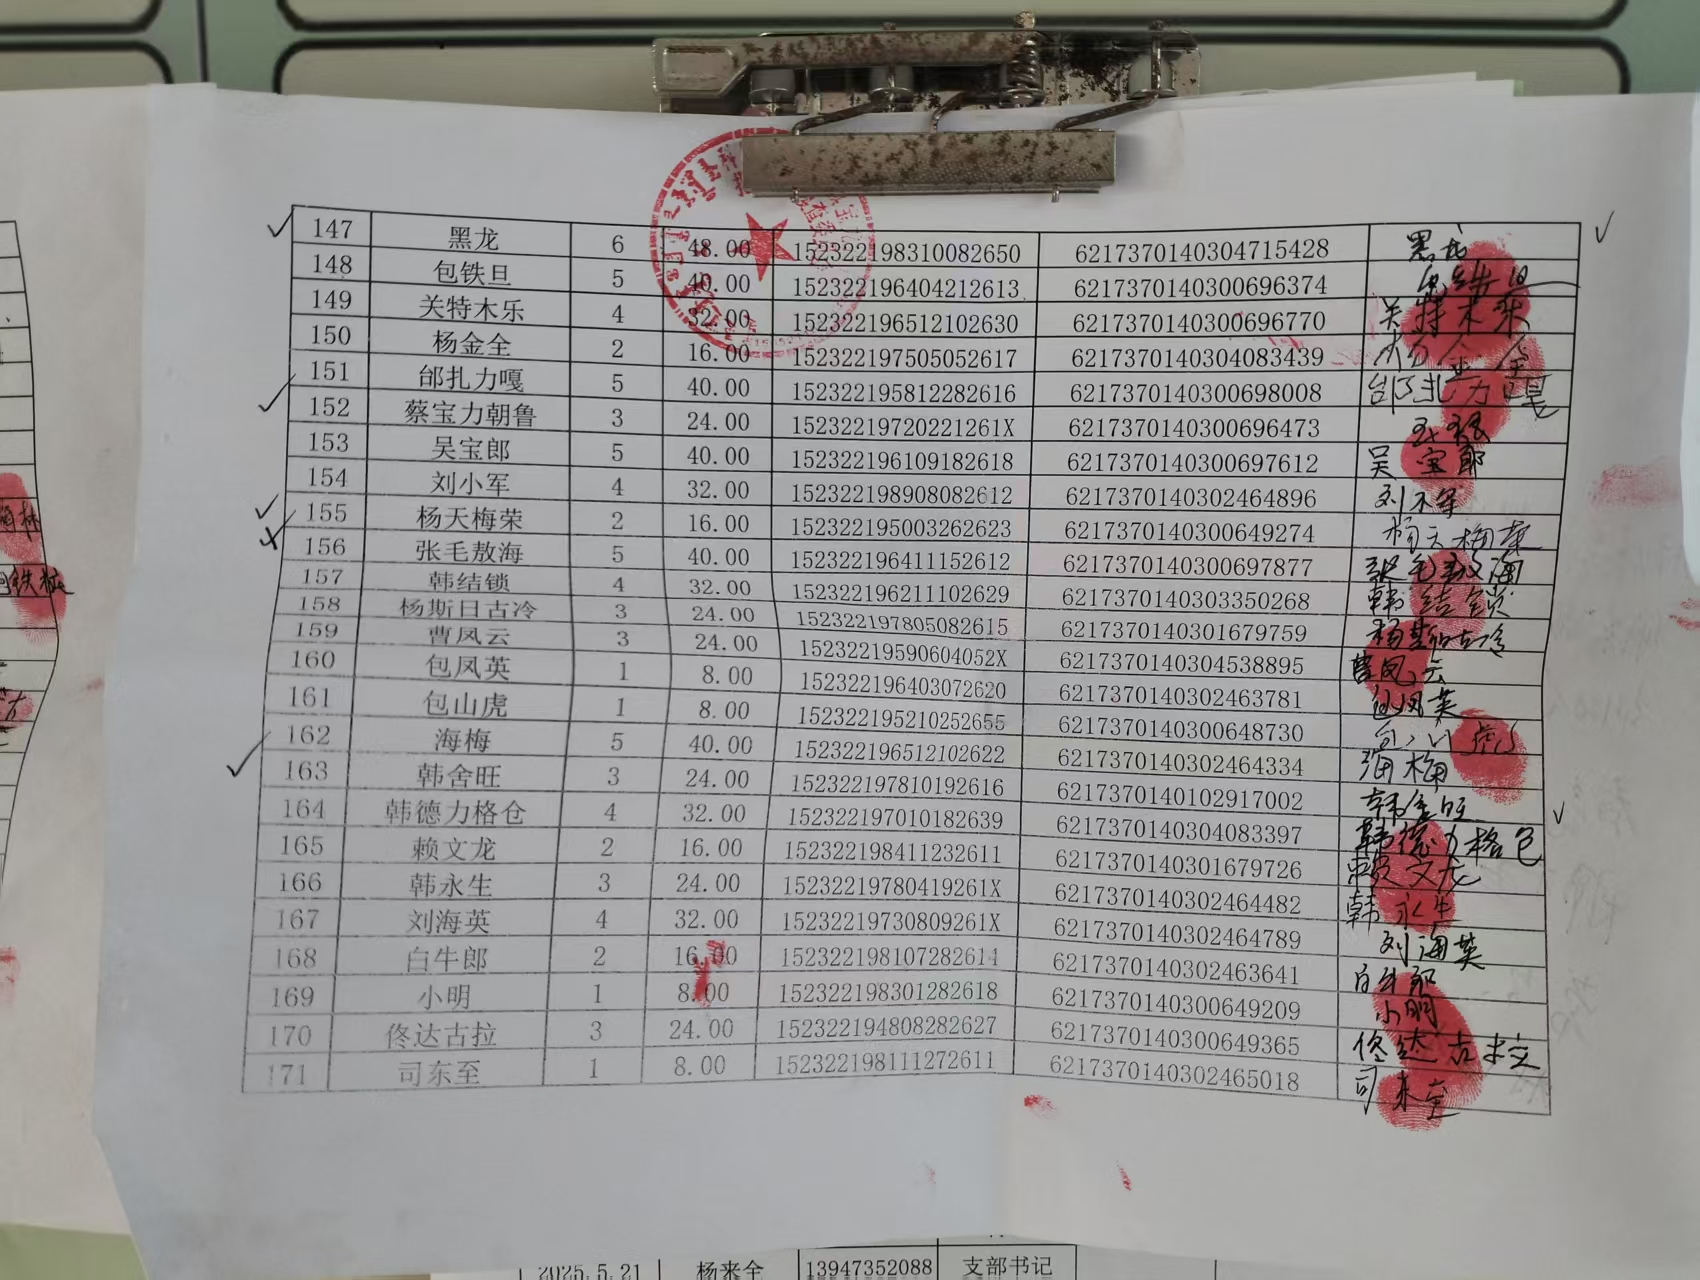 147 黑龙 6 48.00 152322198310082650 6217370140304715428 黑龙
148 包铁旦 5 40.00 152322196404212613 6217370140300696374 包铁旦
149 关特木乐 4 32.00 152322196512102630 6217370140300696770 关特木乐
150 杨金全 2 16.00 152322197505052617 6217370140304083439 杨金全
151 邰扎力嘎 5 40.00 152322195812282616 6217370140300698008 邰扎力嘎
152 蔡宝力朝鲁 3 24.00 15232219720221261X 6217370140300696473
153 吴宝郎 5 40.00 152322196109182618 6217370140300697612 吴宝郎
154 刘小军 4 32.00 152322198908082612 6217370140302464896 刘小军
155 杨天梅荣 2 16.00 152322195003262623 6217370140300649274 杨天梅荣
156 张毛敖海 5 40.00 152322196411152612 6217370140300697877 张毛敖海
157 韩结锁 4 32.00 152322196211102629 6217370140303350268 韩结锁
158 杨斯日古冷 3 24.00 152322197805082615 6217370140301679759 杨斯日古冷
159 曹凤云 3 24.00 15232219590604052X 6217370140304538895 曹凤云
160 包凤英 1 8.00 152322196403072620 6217370140302463781 包凤英
161 包山虎 1 8.00 152322195210252655 6217370140300648730 包山虎
162 海梅 5 40.00 152322196512102622 6217370140302464334 海梅
163 韩舍旺 3 24.00 152322197810192616 6217370140102917002 韩舍旺
164 韩德力格仓 4 32.00 152322197010182639 6217370140304083397 韩德力格仓
165 赖文龙 2 16.00 152322198411232611 6217370140301679726 赖文龙
166 韩永生 3 24.00 15232219780419261X 6217370140302464482 韩永生
167 刘海英 4 32.00 15232219730809261X 6217370140302464789 刘海英
168 白牛郎 2 16.00 152322198107282614 6217370140302463641 白牛郎
169 小明 1 8.00 152322198301282618 6217370140300649209 小明
170 佟达古拉 3 24.00 152322194808282627 6217370140300649365 佟达古拉
171 司东至 1 8.00 152322198111272611 6217370140302465018 司东至
2025.5.21 杨来全 13947352088 支部书记